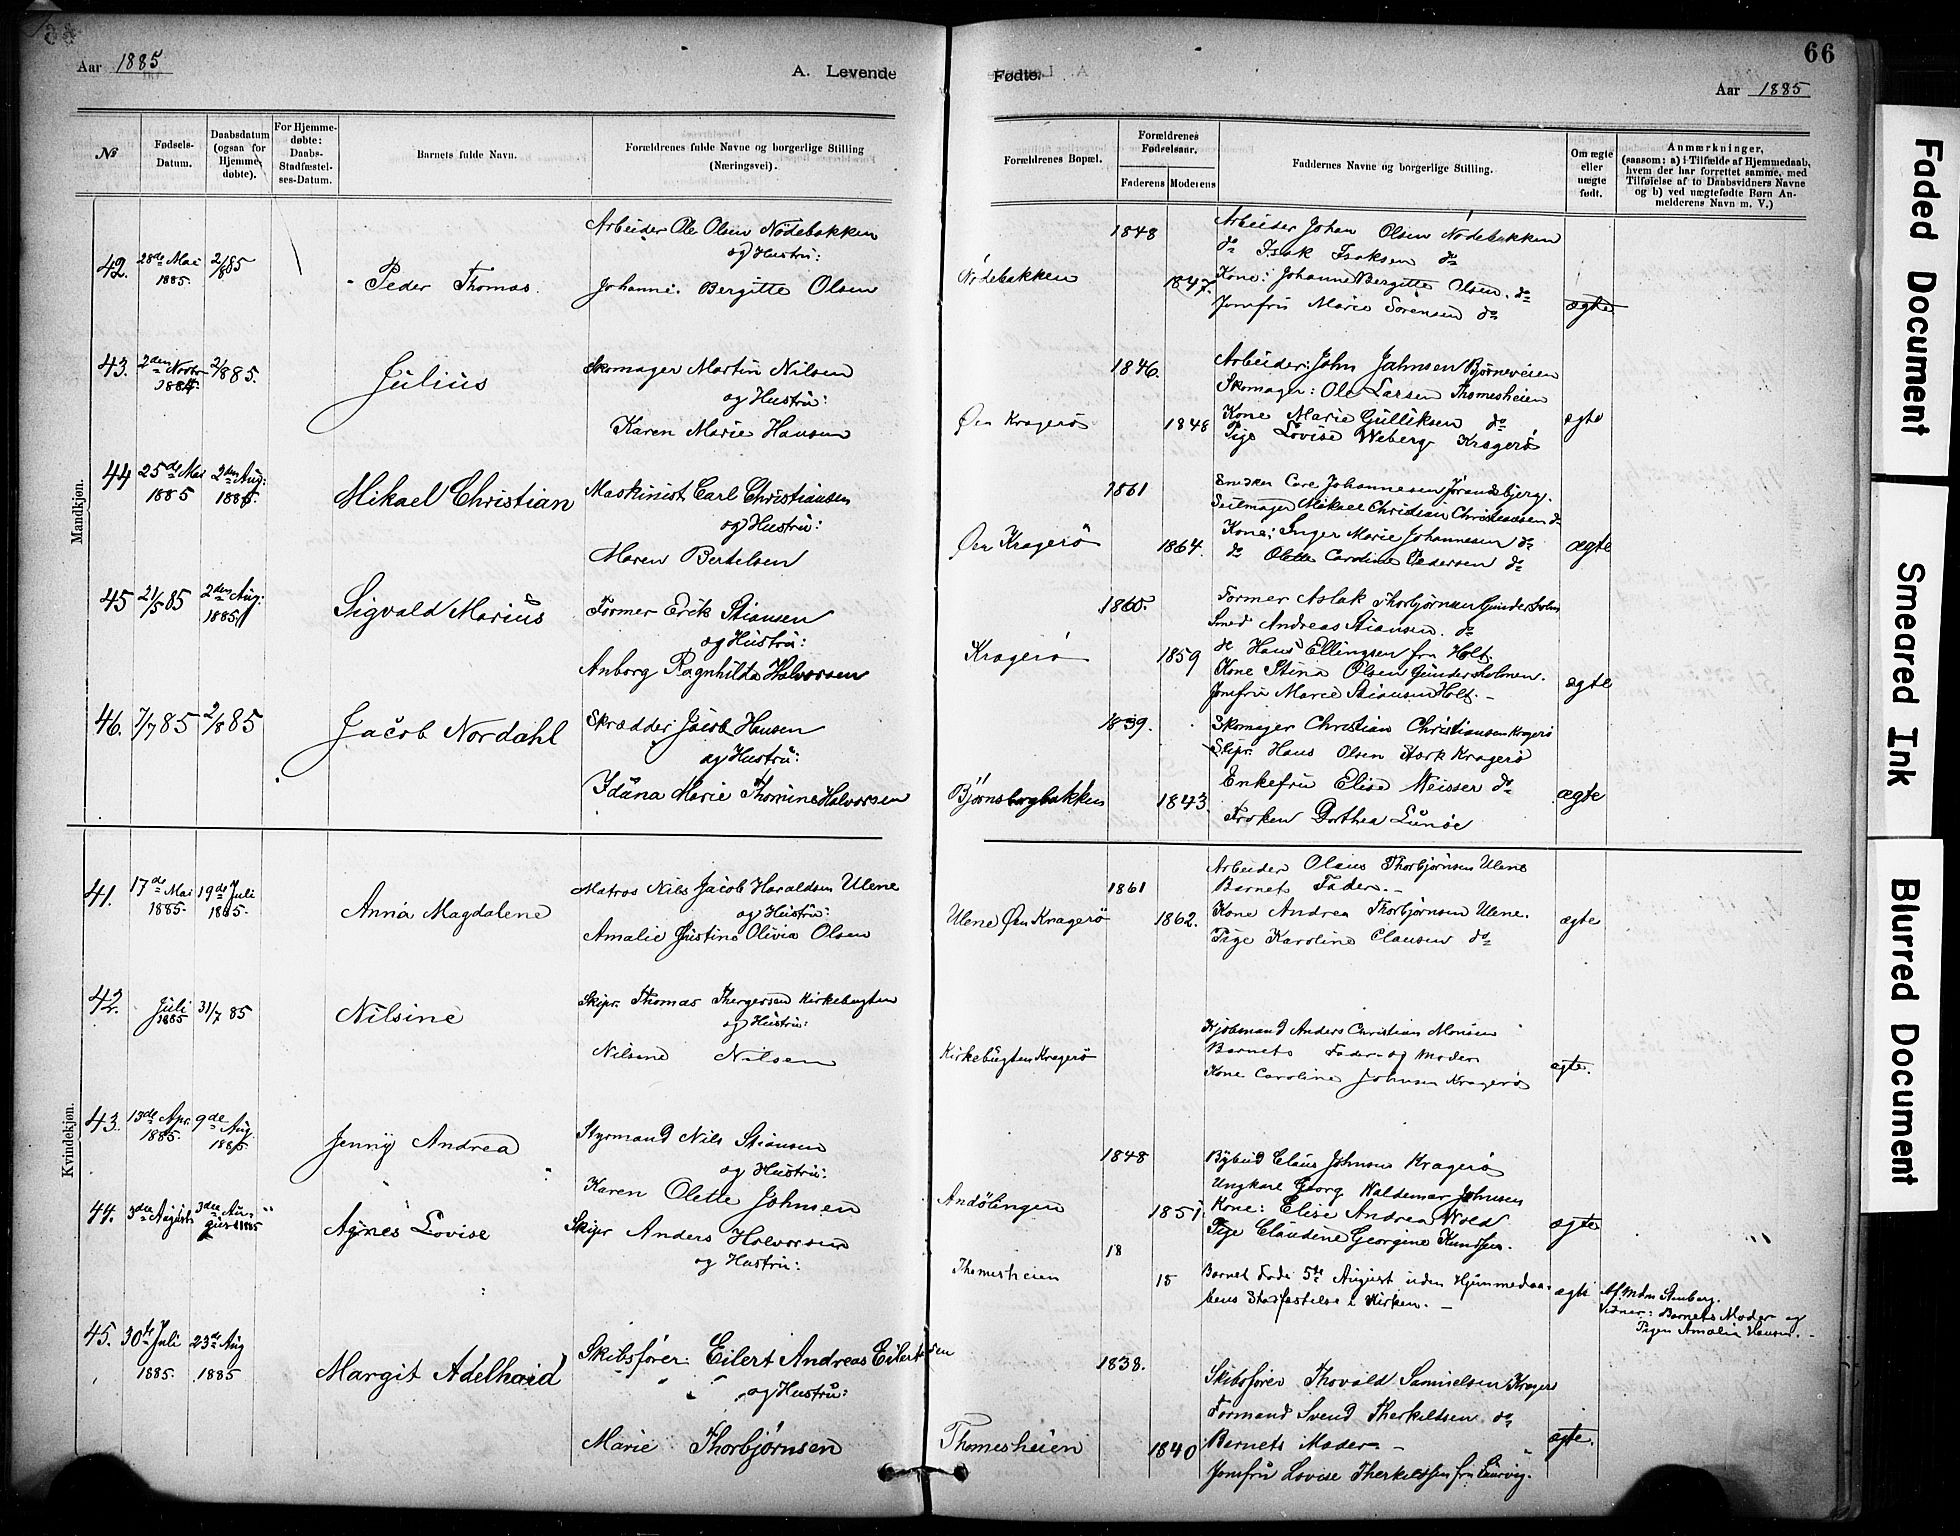 66
Aar 1885
A. Levende
Fødte.
Aar 1885
№
Fødsels-Datum.
Daabsdatum (ogsaa for Hjemmedøbte).
For Hjemmedøbte: Daabs-Stadfæstelses-Datum.
Barnets fulde Navn.
Forældrenes fulde Navne og borgerlige Stilling (Næringsvei).
Forældrenes Bopæl.
Forældrenes Fødselsaar.
Faderens
Moderens
Faddernes Navne og borgerlige Stilling.
Om ægte eller uægte født.
Anmærkninger,
(saasom: a) i Tilfælde af Hjemmedaab,
hvem der har forrettet samme, med
Tilføielse af to Daabsvidners Navne
og b) ved uægtefødte Børn An-
melderens Navn m. V.)
Mandkjøn.
42.
28de Mai 1885.
2/8 85
Peder Thomas.
Arbeider Ole Olsen Nødebakken
og Hustru:
Johanne Bergitte Olsen
Nødebakken
1848
1847.
Arbeider Johan Olsen Nødebakken
do Isak Isaksen do
Kone: Johanne Bergitte Olsen. do
Jomfru Marie Sørensen do
ægte
43.
2/8 85.
Julius
Skomager Martin Nilsen
og Hustru:
Karen Marie Hansen
Øen Kragerø
1846.
1848
Arbeider: John Jahnsen Bjørneveien
Skomager: Ole Larsen Thomesheien
Kone Marie Gulliksen do
Pige Lovise Weberg Kragerø
ægte
44
25de Mai 1885
2den Aug: 1885.
Mikael Christian
Maskinist Carl Christiansen
og Hustru:
Maren Bertelsen
Øen Kragerø
1861
1864.
Snedker Carl Johannesen
Seilmager Mikael Christian Christiansen do
Kone: Inger Marie Johannesen do
do Olette Caroline Pedersen do
ægte
45
21/5 85
2den Aug: 1885
Sigvald Marius
Former Erik Stiansen
og Hustru:
Anborg Ragnhilda Halvorsen
Kragerø
1860.
1859
Former Aslak Thorbjørnsen Gundersholm
Smed Andreas Stiansen. do
do Hans Ellingsen fra Holt
Kone Stina Olsen Gundersholmen.
Jomfru Marie Stiansen Holt. -
ægte
46.
7/7 85
2/8 85
Jacob Nordahl
Skrædder Jacob Hansen
og Hustru:
Iduna Marie Thomine Halvorsen
Bjørnsbergbakken
1839.
1843.
Skomager Christian Christiansen Kragerø
Skipr. Hans Olsen Stork Kragerø
Enkefru Elise Meisser do
Frøken Dorthea Lunøe
ægte
Kvindekjøn.
41.
17de Mai 1885.
19de Juli 1885.
Anna Magdalene
Matros Nils Jacob Haraldsen Ulene
og Hustru:
Amalie Justine Olivia Olsen
Ulene Øen Kragerø
1861
1862.
Arbeider Olaus Thorbjørnsen Ulene
Barnets Fader. -
Kone Andrea Thorbjørnsen Ulene.
Pige Karoline Clausen do
ægte
42.
Juli 1885
31/7 85
Nilsine
Skipr. Thomas Thergersen Kirkebugten
og Hustru:
Nilsine Nilsen
Kirkebugten Kragerø
Kjøbmand Anders Christian Monsen
Barnets Fader og Moder
Kone Caroline Johnsen Kragerø
ægte.
43.
13de Apr. 1885.
9de Aug. 1885.
Jenny Andrea
Styrmand Nils Stiansen
og Hustru:
Karen Olette Johnsen
Andølingen
1848
1851
Bybud Claus Johnsen Kragerø
Ungkarl Georg Waldemar Johnsen
Kone: Elise Andrea Wold
Pige Claudine Georgine Knudsen.
ægte
44.
3die August
3die August 1885
Agnes Lovise
Skipr Anders Halvorsen
og Hustru:
Thomesheien
18
18
Barnet døde 5te August uden Hjemmedaa-
bens Stadfæstelse i Kirken. -
ægte
Af Mdm Stenberg.
Vidner: Barnets Moder og
Pigen Amalia Hansen. -
45.
30te Juli 1885.
23de Aug 1885
Margit Adelhaid
Skibsfører: Eilert Andreas Eilertsen
og Hustru:
Marie Thorbjørnsen
Thomesheien
1838.
1840
Skibsfører Thovald Samuelsen Kragerø
Formand Svend Therkildsen do
Barnets Moder -
Jomfru Lovise Therkildsen fra Laurvig.
ægte.
Faded Document
Smeared Ink
Blurred Document